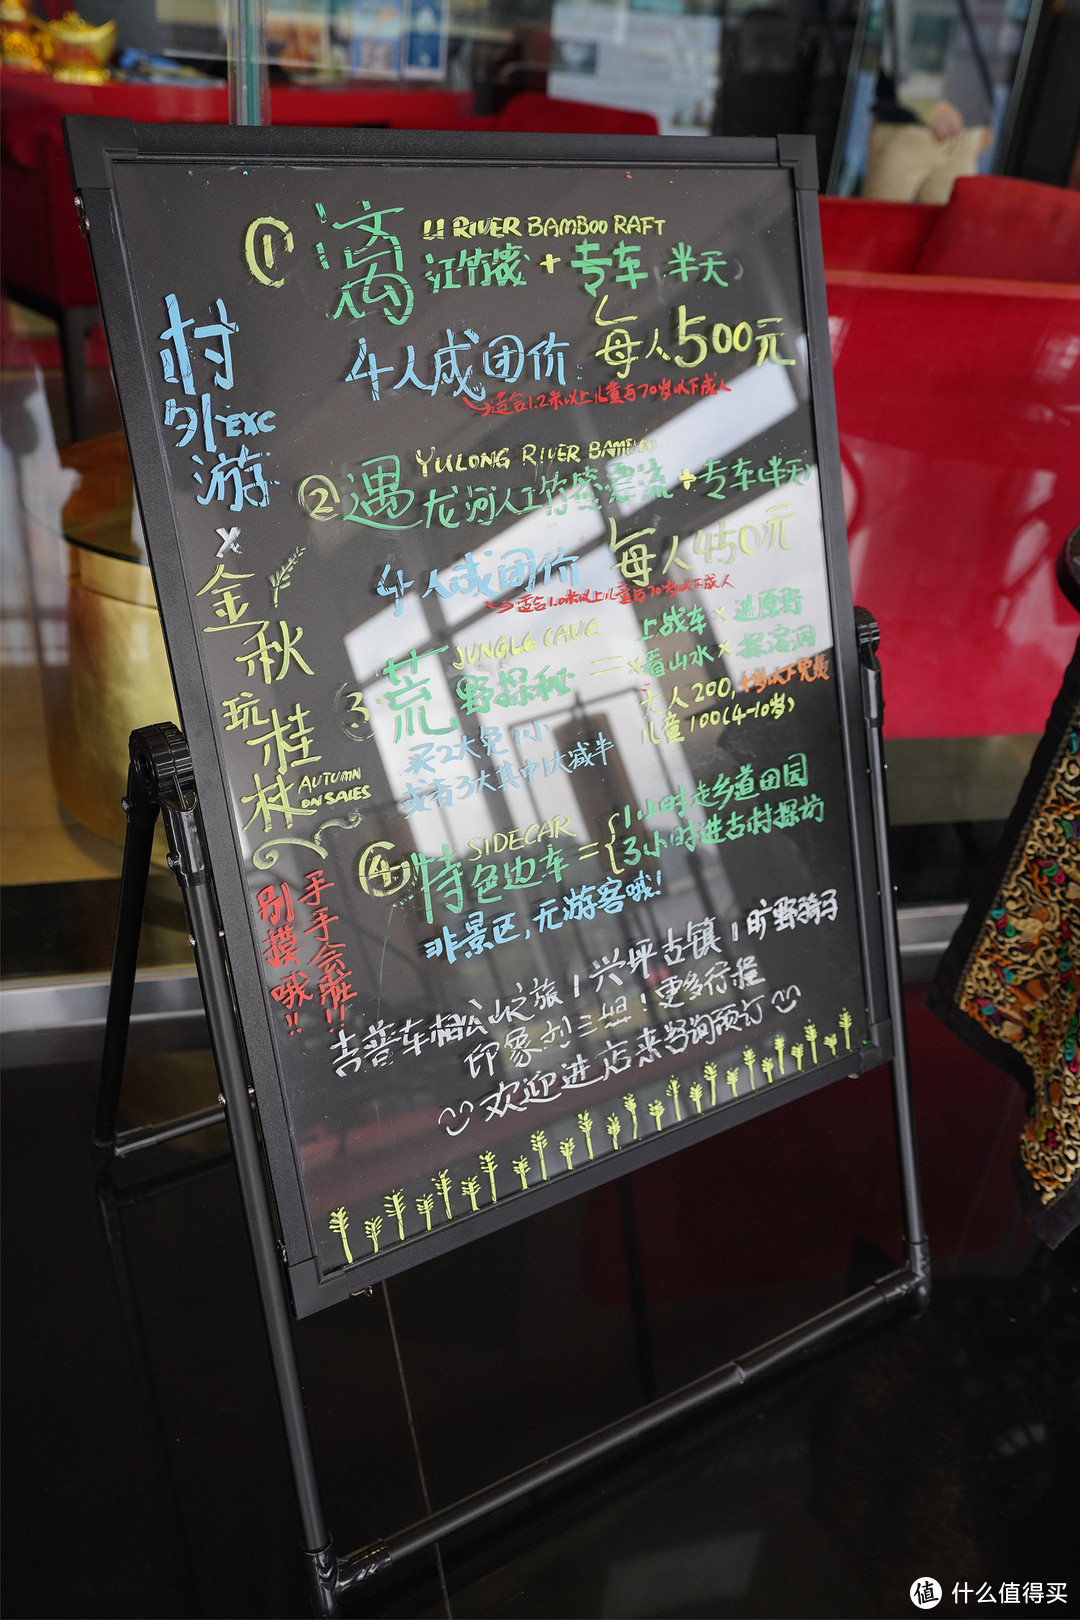 ① 漓 LI RIVER BAMBOO RAFT
江竹筏+专车(半天)
4人成团价 每人500元
适合1.2米以上儿童与70岁以下成人
② 遇 YULONG RIVER BAMBOO
龙河人工竹筏漂流+专车(半天)
4人成团价 每人450元
适合1.0米以上儿童与70岁以下成人
③ 荒 JUNGLE CAVE
野探秘 = 上战车×进原野
×看山水×探溶洞
大人200,4岁以下免费
儿童100(4-10岁)
买2大免1小
或者3大其中1大减半
④ 特 SIDECAR
色边车= 1小时走乡道田园
3小时进古村探坊
非景区,无游客哦!
吉普车相公山之旅/兴坪古镇/旷野骑子
印象刘三姐!更多行程
欢迎进店来咨询预订
村
外EXC
游
x
金
秋
玩
桂
林 AUTUMN
ON SALES
别摸哦!!
手手会脏!!
值 什么值得买